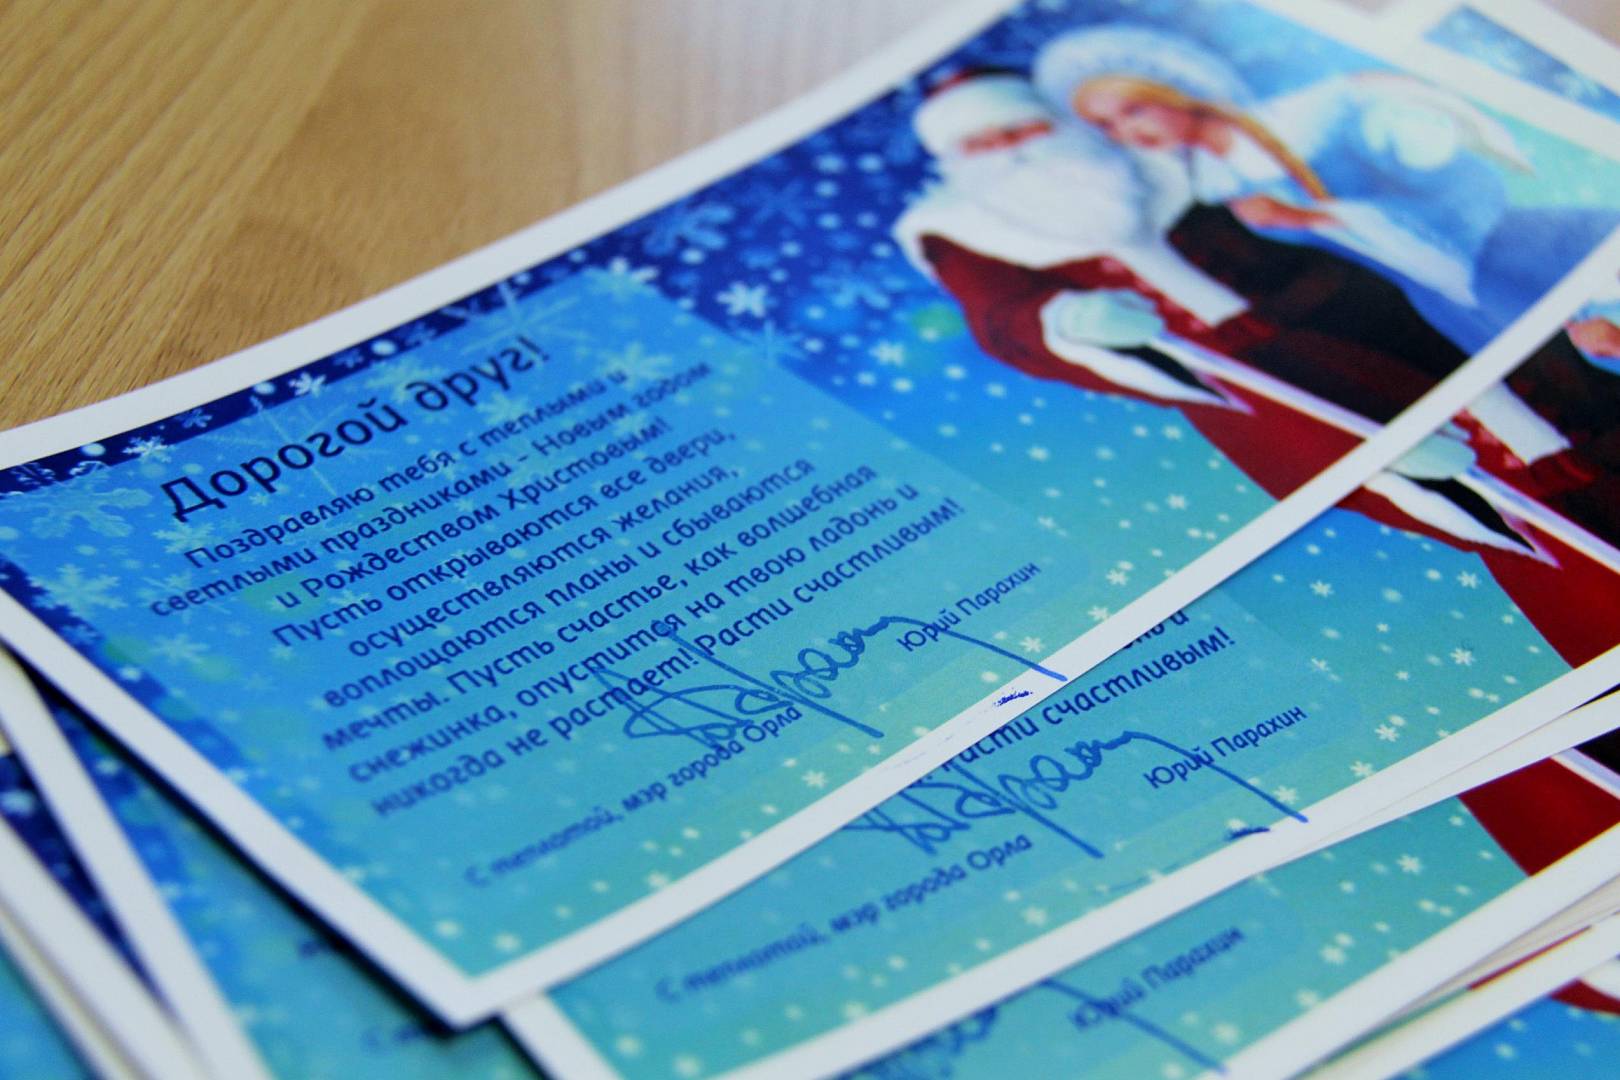 Дорогой друг!
Поздравляю тебя с теплыми и
светлыми праздниками - Новым годом
и Рождеством Христовым!
Пусть открываются все двери,
осуществляются желания,
воплощаются планы и сбываются
мечты. Пусть счастье, как волшебная
снежинка, опустится на твою ладонь и
никогда не растает! Расти счастливым!
С теплотой, мэр города Орла
Юрий Парахин
Расти счастливым!
С теплотой, мэр города Орла
Юрий Парахин
Юрий Парахин